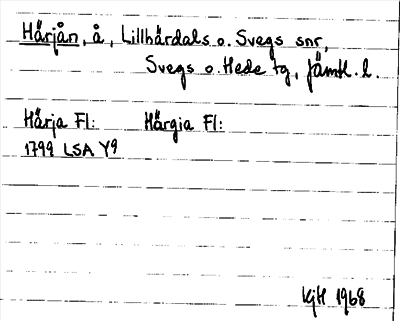 Härjån, å, Lillhärdals o. Svegs snr,
Svegs o. Hede tg, jämtl. l.
Härja Fl: Härgia Fl:
1799 LSA Y9
KjH 1968